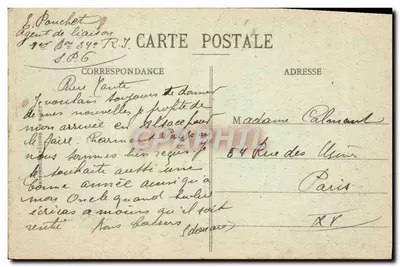 E. Pouchet
Agent de liaison
1er Bon 84e R.I.
S.P. 6
CARTE POSTALE
CORRESPONDANCE
ADRESSE
Chère Tante
Je voulais toujours te donner
de mes nouvelles je profite de
mon arrivée en Alsace pour
le faire.
nous sommes bien reçus je
te souhaite aussi une
bonne année ainsi qu'à
mon Oncle quand tu lui
écriras a moins qu'il soit
rentré Bons baisers
Edouard
Madame Calmant
54 Rue des Usines
Paris
XV